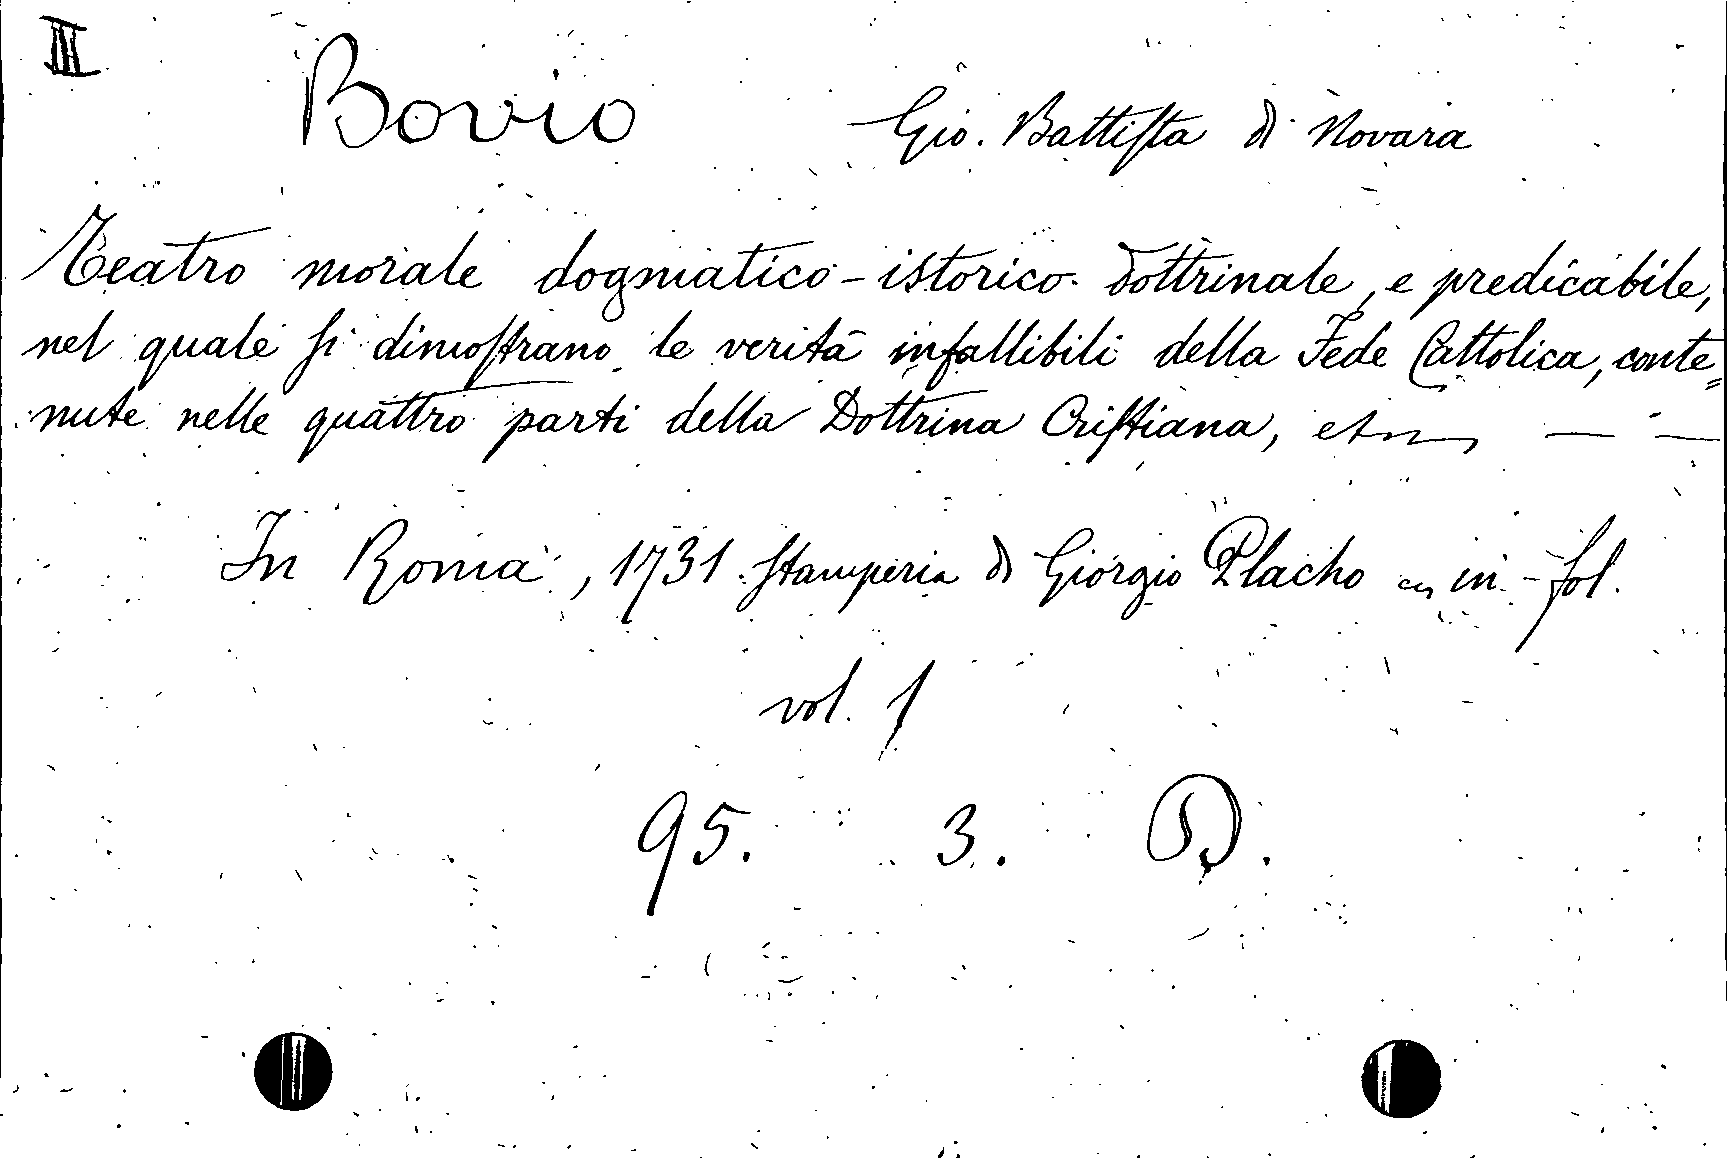 III
Bovio Gio. Battiſta di Novara
Teatro morale dogmatico-istorico-dottrinale, e predicabile,
nel quale ſi dimoſtrano le verità infallibili della Fede Cattolica, conte=
nute nelle quattro parti della Dottrina Criſtiana, etc, — —
In Roma, 1731. Stamperia di Giorgio Placho in-fol.
vol. 1
95. 3. D.